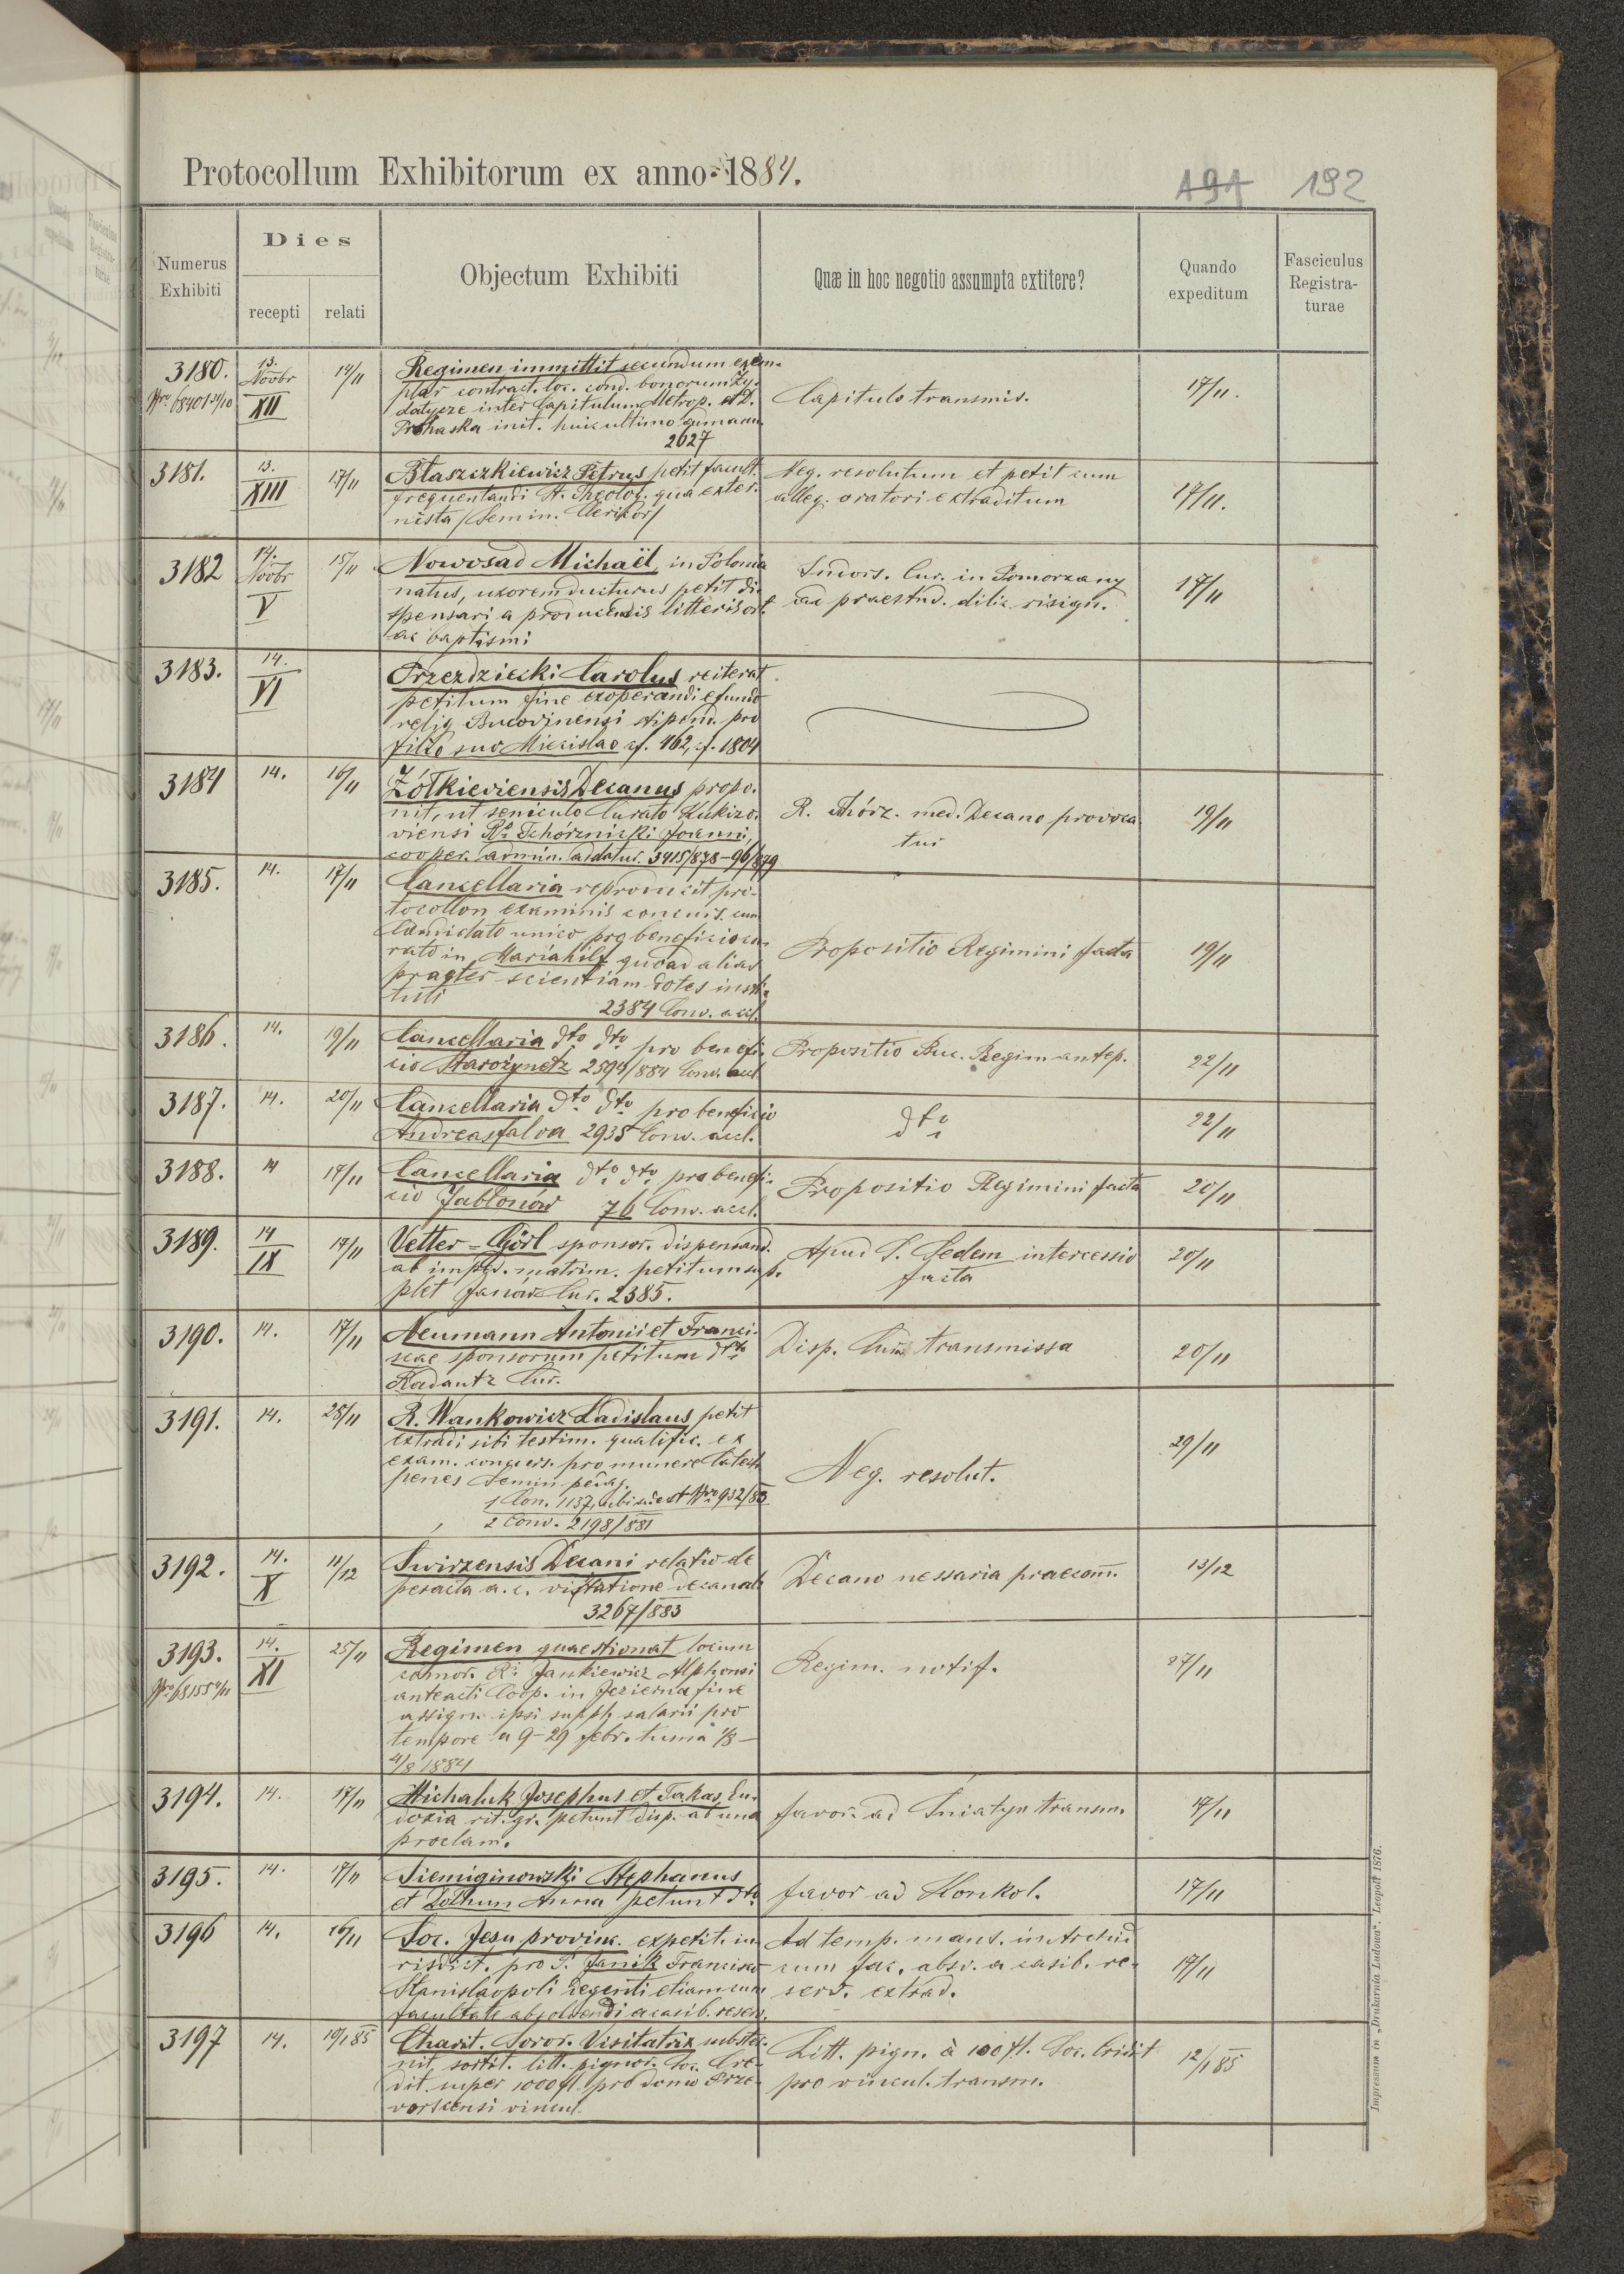 Protocollum Exhibitorum ex anno 1884.
191 192
Numerus Exhibiti
Dies
recepti
relati
Objectum Exhibiti
Quæ in hoc negotio assumpta extitere?
Quando expeditum
Fasciculus Registra-
turae
3180.
13.
Novbr
XII
14/11
Regimen immittit secundum exem-
plar contract. loc. cond. bonorum
inter Capitulum Metrop. et D.
Prohaska init. huic ultimo
2627
Capitulo transmis.
17/11.
3181.
13.
XIII
17/11
Błaszczkiewicz Petrus petit facult.
frequentandi St. Theolog. qua exter-
nista /Semin. Cleric/
Neg. resolutum et petit cum
alleg. oratori extraditum
17/11.
3182
14.
Novbr
V
15/11
Nowosad Michaël, in Polonia
natus, uxorem ducturus petit di-
spensari a producendis litteris ort.
ac baptismi
Cur. in Pomorzany
ad praestnd.
17/11
3183.
14.
VI
Przezdziecki Carolus reiterat
petitum fine exoperandi e fundo
relig. Bucovinensi stipend. pro
filio suo Miecislao cf. 462, cf. 1804
3184
14.
16/11
Żółkieviensis Decanus propo-
nit, ut seniculo Curato Kukizo-
viensi Rs Tchórznicki Joanni,
cooper. admin. addatur. 3415/878-96/879
R. Thórz. med. Decano provoca-
tur
19/11
3185.
14.
17/11
Cancellaria reproducit pro-
tocollon examinis concurs. cum
Candidato unico pro beneficio cu-
rato in Mariahilf quoad alias
praeter scientiam dotes insti-
tuti
2384 Conv. accl.
Propositio Regimini facta
19/11
3186.
14.
19/11
Cancellaria dto dto pro benefi-
cio Starożynetz 2594/884 Conv. accl.
Propositio Buc. Regim antep.
22/11
3187.
14.
20/11
Cancellaria dto dto pro beneficio
Andreasfalva 2935 Conv. accl.
dto
22/11
3188.
14
17/11
Cancellaria dto dto pro benefi-
cio Jabłonów 76 Conv. accl.
Propositio Regimini facta
20/11
3189.
14
IX
17/11
Vetter = Görl sponsor. dispensand.
ab imped. matrim. petitum sup-
plet Janów Cur. 2385.
Apud S. Sedem intercessio
facta
20/11
3190.
14.
17/11
Neumann Antonii et Franci-
scae sponsorum petitum dto
Radautz Cur.
Disp. transmissa
20/11
3191.
14.
28/11
R. Wankowicz Ladislaus petit
extradi sibi testim. qualific. ex
exam. concurs. pro munere Catech.
penes Semin. pedag.
1 Con. 1137, ubi Nro 932/83
2 Conv. 2198/881
Neg. resolut.
29/11
3192.
14.
X
11/12
Swirzensis Decani relatio de
peracta a. c. visitatione decanali
3267/883
Decano nessaria praecom.
13/12
3193.
14.
XI
25/11
Regimen quaestionat locum
comor. Ri Jankiewicz Alphonsi
anteacti Coop. in Jezierna fine
assign. ipsi suppl. salarii pro
tempore a 9-29 febr. tum a 1/3 -
4/8 1884
Regim. notif.
27/11
3194.
14.
17/11
Michaluk Josephus et Takas Eu-
doxia rit. gr. petunt disp. ab una
proclam.
favor. ad Śniatyn transm.
17/11
3195.
14.
17/11
Siemiginowski Stephanus
et Anna petunt dto
favor ad Konkol.
17/11
3196
14.
16/11
Soc. Jesu provinc. expetit. iu-
risdict. pro P. Janik Francisco
Stanislaopoli degenti etiam cum
facultate absolvendi a casib. reserv.
Ad temp. mans. in Archid
cum fac. absv. a casib. re-
serv. extrad.
17/11
3197
14.
10/1 85
Charit. Soror. Visitatrix subster-
nit, sortit. litt. pignor. Soc. Cre-
dit. super 1000 fl. pro domo Prze-
vorscensi vincul.
Litt. pign. à 100 fl. Soc. Credit
pro vincul. transm.
12/1 85
Impressum in „Drukarnia Ludowa". Leopoli 1876.